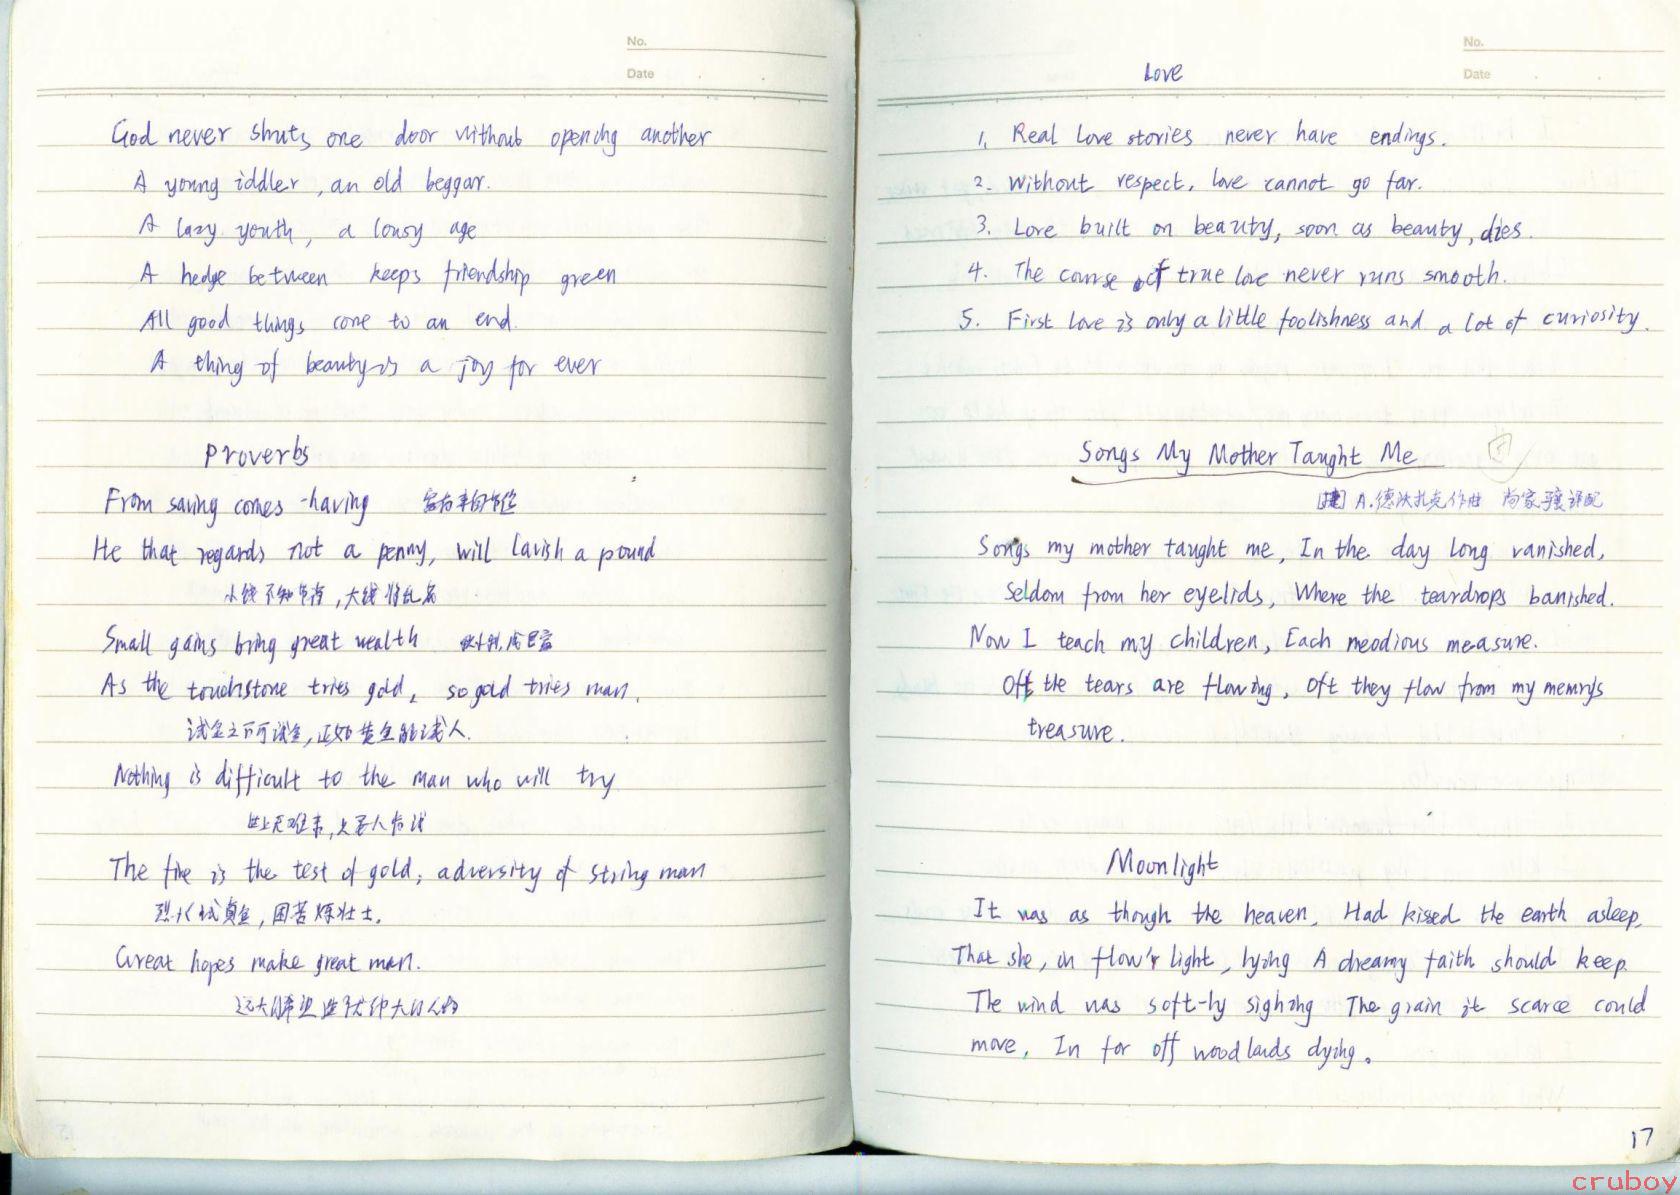 No.
Date
God never shuts one door without opening another
A young iddler, an old beggar.
A lazy youth, a lousy age
A hedge between keeps friendship green
All good things come to an end.
A thing of beauty is a joy for ever
Proverbs
From saving comes -having
He that regards not a penny, will lavish a pound
小钱不知节省,大钱将乱
Small gains bring great wealth
As the touchstone tries gold, so gold tries man.
试金之石可试金,正如黄金能试人.
Nothing is difficult to the man who will try
世上无难事,只要人肯试
The fire is the test of gold; adversity of string man
烈火试真金,困苦炼壮士.
Great hopes make great man.
No.
Date
Love
1. Real Love stories never have endings.
2. Without respect, love cannot go far.
3. Love built on beauty, soon as beauty, dies.
4. The course of true love never runs smooth.
5. First Love is only a little foolishness and a lot of curiosity.
Songs My Mother Taught Me
[捷] A.德沃扎克作曲 尚家骧译配
Songs my mother taught me, In the day long vanished,
Seldom from her eyelids, Where the teardrops banished.
Now I teach my children, Each meodious measure.
Oft the tears are flowing, oft they flow from my memrys
treasure.
Moonlight
It was as though the heaven, Had kissed the earth asleep,
That she, in flow'r light, lying A dreamy faith should keep
The wind was soft-ly sighing The grain it scarce could
move, In far off woodlands dying.
17
cruboy